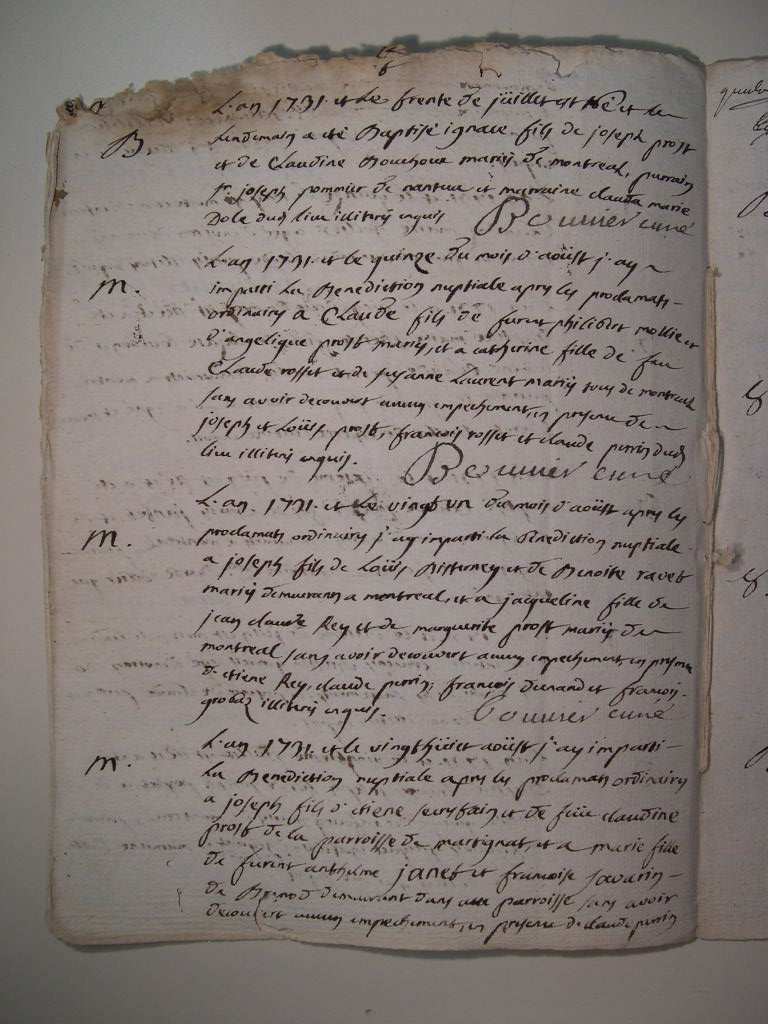 L'an 1731. et Le trente de jüillet est né et Le
B. Lendemain a eté Baptisé ignace fils de joseph prost
et de Claudine Bouchoux mariés de montreal, parrain
Sr. joseph pommier de nantua et marraine clauda marie
Dole dud. lieu illiterés enquis Bouvier curé
L'an 1731. et le quinze du mois d'aoüst j'ay
m. imparti La Benediction nuptiale apres les proclamats
ordinaires a Claude fils de furent philibert mollie et
d'angelique prost mariés, et a catherine fille de feu
Claude rosset et de susanne Laurent mariés tous de montreal
sans avoir decouvert aucun empechement, en presence de
joseph et Loüis prost, francois rosset et claude perrin dud.
lieu illiterés enquis. Bouvier curé
L'an. 1731. et Le vingt un du mois d'aoüst apres les
m. proclamats ordinaires j'ay imparti La Benediction nuptiale
a joseph fils de Loüis et de Benoite ravet
mariés demeurans a montreal, et a jacqueline fille de
jean claude Rey et de marguerite prost mariés de
montreal sans avoir decouvert aucun empechement, en presence
d'etiene Rey, claude perrin, francois Durand et francois
illiterés enquis. bouvier curé
L'an. 1731. et le vingthüict aoüst j'ay imparti
m. La Benediction nuptiale apres les proclamats ordinaires
a joseph fils d'etiene et de füe claudine
prost de la parroisse de martignat, et a marie fille
de furent anthelme janet et francoise savarin
de demeurant dans cette parroisse sans avoir
decouvert aucun empechement, en presence de claude perrin